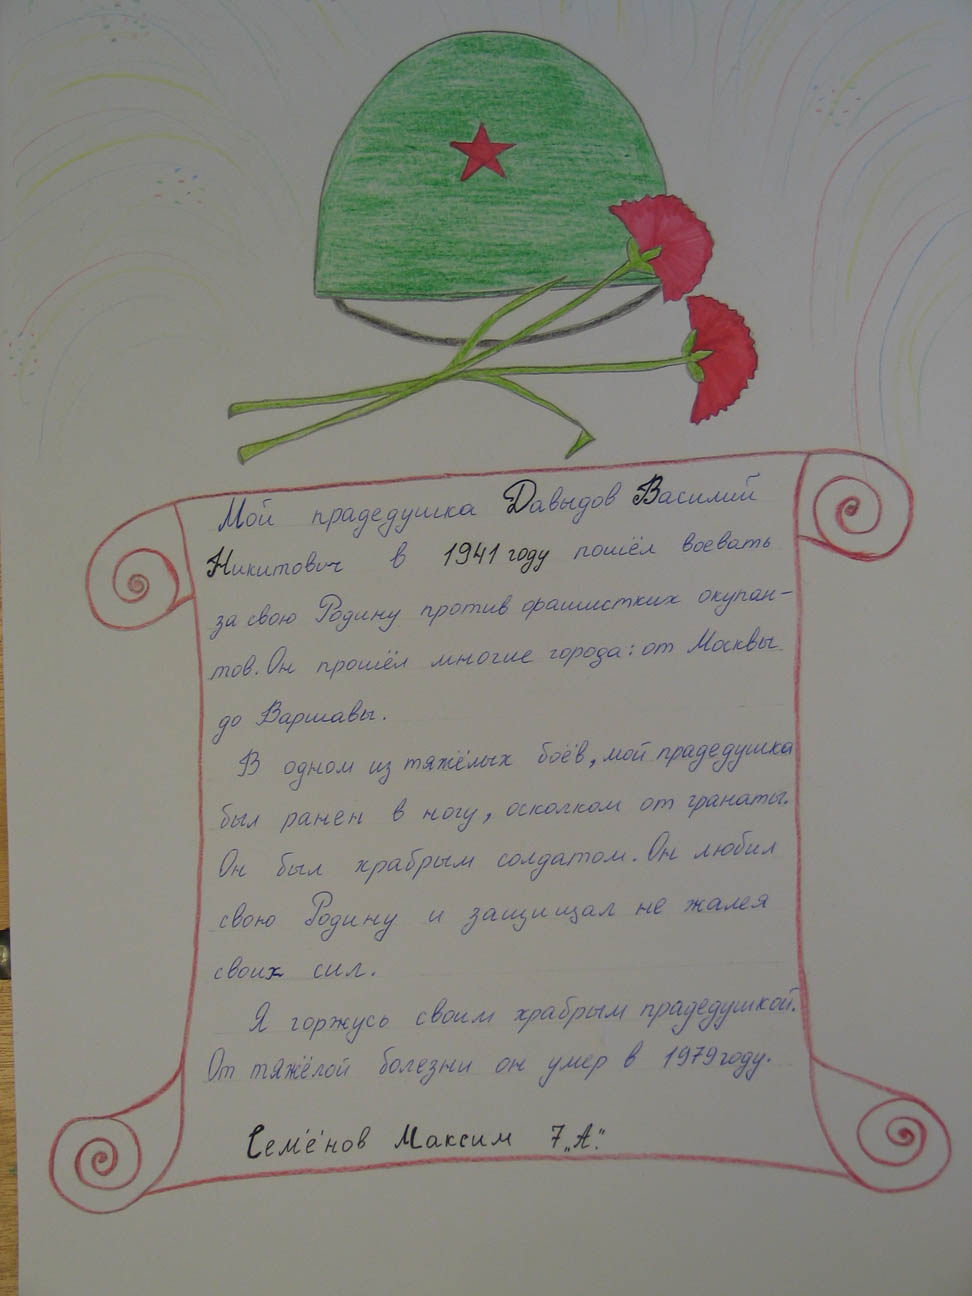 Мой прадедушка Давыдов Василий
Никитович в 1941 году пошёл воевать
за свою Родину против фашистких окупан-
тов. Он прошёл многие города: от Москвы
до Варшавы.
В одном из тяжёлых боёв, мой прадедушка
был ранен в ногу, осколком от гранаты.
Он был храбрым солдатом. Он любил
свою Родину и защищал не жалея
своих сил.
Я горжусь своим храбрым прадедушкой.
От тяжёлой болезни он умер в 1979 году.
Семёнов Максим 7 „А".